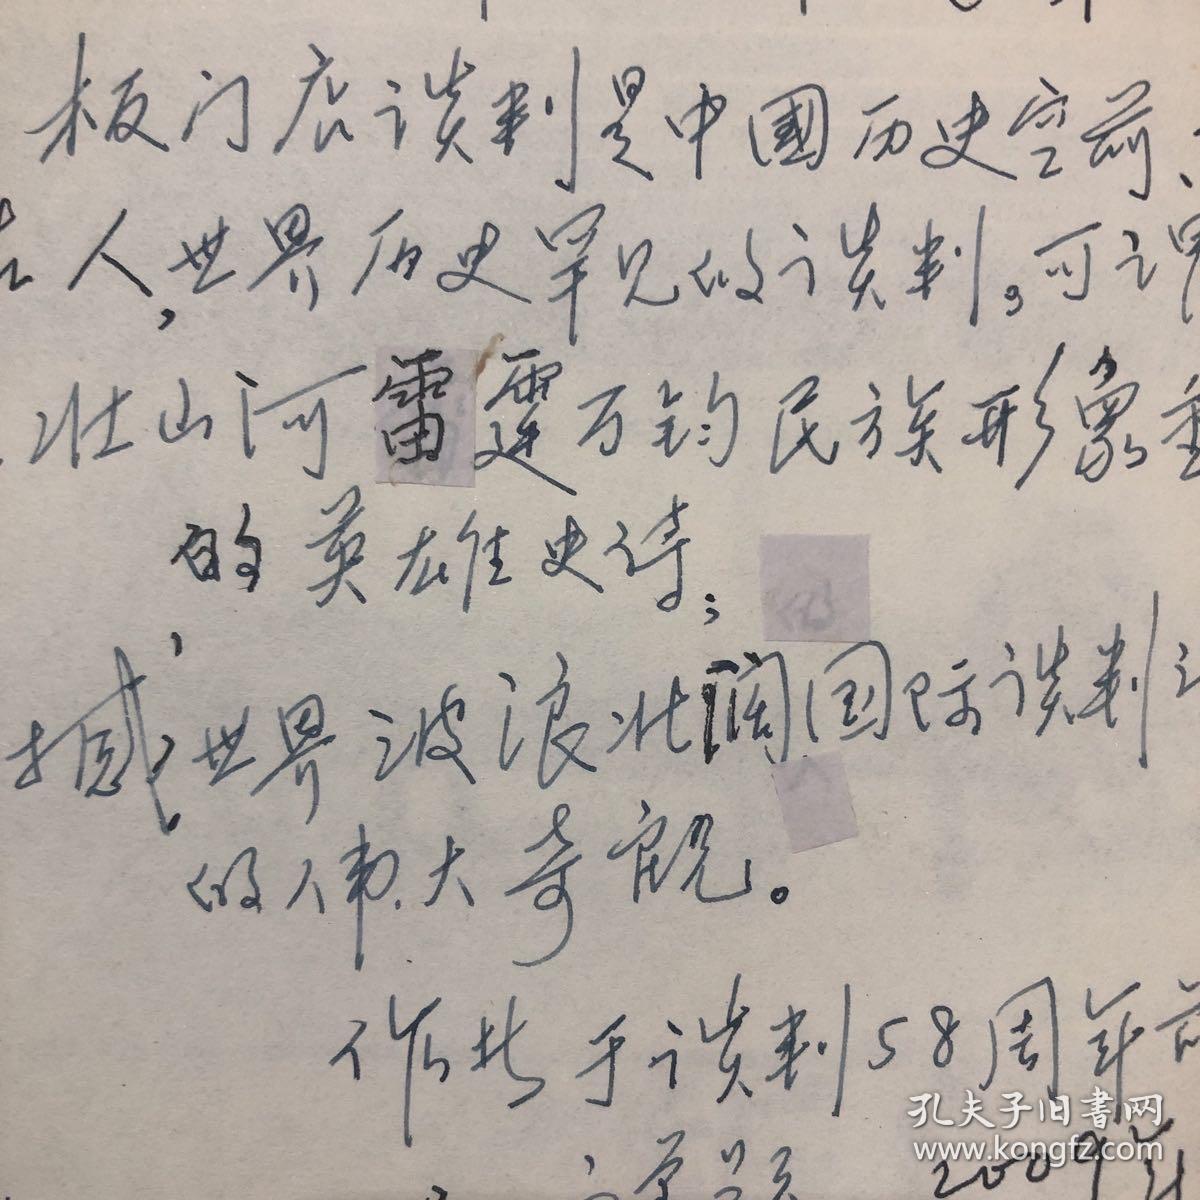 板门店谈判是中國历史空前、
人,世界历史罕见的谈判。可谓
壮山河雷霆万钧民族形象
的英雄史诗;
撼世界波浪壮阔国际谈判
的伟大奇观。
作于谈判58周年前
2009年
孔夫子旧書网
www.kongfz.com